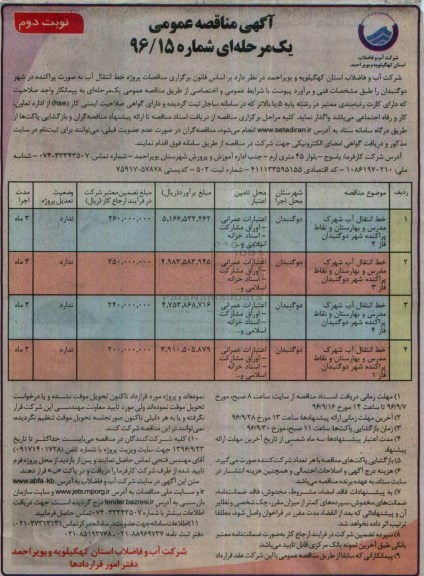 نوبت دوم
آگهی مناقصه عمومی
یک‌مرحله‌ای شماره ۹۶/۱۵
شرکت آب و فاضلاب
استان کهگیلویه و بویراحمد
شرکت آب و فاضلاب استان کهگیلویه و بویراحمد در نظر دارد بر اساس قانون برگزاری مناقصات پروژه خط انتقال آب به صورت پراکنده در شهر
دوگنبدان را طبق مشخصات فنی و برآورد پیوست با شرایط عمومی و اختصاصی از طریق مناقصه عمومی یک‌مرحله‌ای به پیمانکار واجد صلاحیت
که دارای کارت رتبه‌بندی معتبر در رشته پایه ۵ یا بالاتر که در سامانه ساجار ثبت گردیده و دارای گواهی صلاحیت ایمنی کار (hse) از اداره تعاون،
کار و رفاه اجتماعی می‌باشد واگذار نماید. کلیه مراحل برگزاری مناقصه از دریافت اسناد مناقصه تا ارائه پیشنهاد مناقصه‌گران و بازگشایی پاکت‌ها از
طریق درگاه سامانه ستاد به آدرس www.setadiran.ir انجام می‌شود، مناقصه‌گران در صورت عدم عضویت قبلی، می‌توانند برای ثبت‌نام در سایت
مذکور و دریافت گواهی امضای الکترونیکی جهت شرکت در مناقصه از طریق سامانه فوق اقدام نمایند.
آدرس شرکت کارفرما: یاسوج – بلوار ۴۵ متری ارم – جنب اداره آموزش و پرورش شهرستان بویراحمد – شماره تماس: ۳۳۳۴۳۵۰۷-۰۷۴ – شناسه
ملی: ۱۰۸۶۱۹۷۰۲۱۰ – کد اقتصادی: ۴۱۱۱۳۳۵۹۵۱۵۵ – شماره ثبت: ۵۰۲ – کدپستی: ۷۵۹۱۷-۵۷۸۷۸
ردیف موضوع مناقصه شهرستان محل اجرا محل تامین اعتبار مبلغ برآورد (ریال) مبلغ تضمین معتبر شرکت در فرآیند ارجاع کار (ریال) وضعیت تعدیل پروژه مدت اجرا
۱ خط انتقال آب شهرک مدرس و بهارستان و نقاط پراکنده شهر دوگنبدان فاز ۲ دوگنبدان اعتبارات عمرانی – اوراق مشارکت – اسناد خزانه اسلامی و... ۵,۱۶۶,۵۳۲,۴۶۲ ۲۶۰,۰۰۰,۰۰۰ ندارد ۳ ماه
۲ خط انتقال آب شهرک مدرس و بهارستان و نقاط پراکنده شهر دوگنبدان فاز ۳ دوگنبدان اعتبارات عمرانی – اوراق مشارکت – اسناد خزانه اسلامی و... ۴,۹۸۳,۵۸۳,۹۴۵ ۲۵۰,۰۰۰,۰۰۰ ندارد ۳ ماه
۳ خط انتقال آب شهرک مدرس و بهارستان و نقاط پراکنده شهر دوگنبدان فاز ۴ دوگنبدان اعتبارات عمرانی – اوراق مشارکت – اسناد خزانه اسلامی و... ۴,۷۵۳,۸۶۸,۷۱۶ ۲۴۰,۰۰۰,۰۰۰ ندارد ۳ ماه
۴ خط انتقال آب شهرک مدرس و بهارستان و نقاط پراکنده شهر دوگنبدان فاز ۱ دوگنبدان اعتبارات عمرانی – اوراق مشارکت – اسناد خزانه اسلامی و... ۳,۹۱۰,۵۰۵,۸۷۹ ۲۰۰,۰۰۰,۰۰۰ ندارد ۳ ماه
۱) مهلت زمانی دریافت اسناد مناقصه از سایت: ساعت ۸ صبح، مورخ
۹۶/۹/۷ تا ساعت ۱۴ مورخ ۹۶/۹/۱۶
۲) آخرین مهلت زمانی ارائه پیشنهادها ساعت ۱۳ مورخ ۹۶/۹/۲۸
۳) زمان بازگشایی پاکت‌ها ساعت ۱۱ صبح، مورخ ۹۶/۹/۳۰
۴) مدت اعتبار پیشنهادها سه ماه شمسی از تاریخ آخرین مهلت ارائه
پیشنهاد
۵) بازگشایی پاکت‌های مناقصه با هر تعداد شرکت‌کننده صورت می‌گیرد.
۶) هزینه درج آگهی و اصلاحات احتمالی و همچنین هزینه انتشار در
سایت ستاد به عهده برنده مناقصه می‌باشد.
۷) به پیشنهادات فاقد امضاء، مشروط، مخدوش، فاقد ضمانت‌نامه،
ضمانت‌های مخدوش، سپرده‌های کمتر از میزان مقرر، چک شخصی و نظایر
آن و پیشنهاداتی که بعد از انقضاء مدت مقرر در فراخوان واصل شود، مطلقا
ترتیب اثر داده نخواهد شد.
۸) سپرده تضمین شرکت در فرایند ارجاع کار به‌صورت ضمانت‌نامه معتبر
بانکی طبق آخرین نمونه بانک مرکزی قابل تایید می‌باشد.
۹) پیمانکارانی که سابقا از طریق مناقصه عمومی با این شرکت عقد قرارداد
نموده‌اند و پروژه مورد قرارداد تاکنون تحویل موقت نشده و یا درخواست
تحویل موقت نموده‌اند ولی مورد تایید معاونت مهندسی این شرکت قرار
نگرفته و یا به هر دلیلی تاکنون صورتجلسه تحویل موقت تنظیم نگردیده،
نمی‌توانند در این مناقصه شرکت کنند.
۱۰) کلیه شرکت‌کنندگان در مناقصه می‌بایست حداکثر تا تاریخ
۱۳۹۶/۹/۲۳ جهت سایت ویزیت پروژه با شماره تلفن (۰۹۱۷۷۴۱۰۱۷۲۸)
آقای مهندس فتحی تماس حاصل نمایند و پس از بازدید از محل پروژه فرم
تایید شده از طرف شرکت کارفرما را دریافت و در پاکت «ب» قرار دهند.
متن این آگهی در سایت شرکت آب و فاضلاب به آدرس www.abfa-kb.ir
و سایت ملی مناقصات به آدرس www.iets.mporg.ir و سایت معاونت
بازرسی به آدرس tender.bazresi.ir درج گردیده است. جهت دریافت
اطلاعات بیشتر با شماره ۳۳۳۴۳۵۰۷-۰۷۴ تماس حاصل فرمایید.
شرکت آب و فاضلاب استان کهگیلویه و بویراحمد
دفتر امور قراردادها